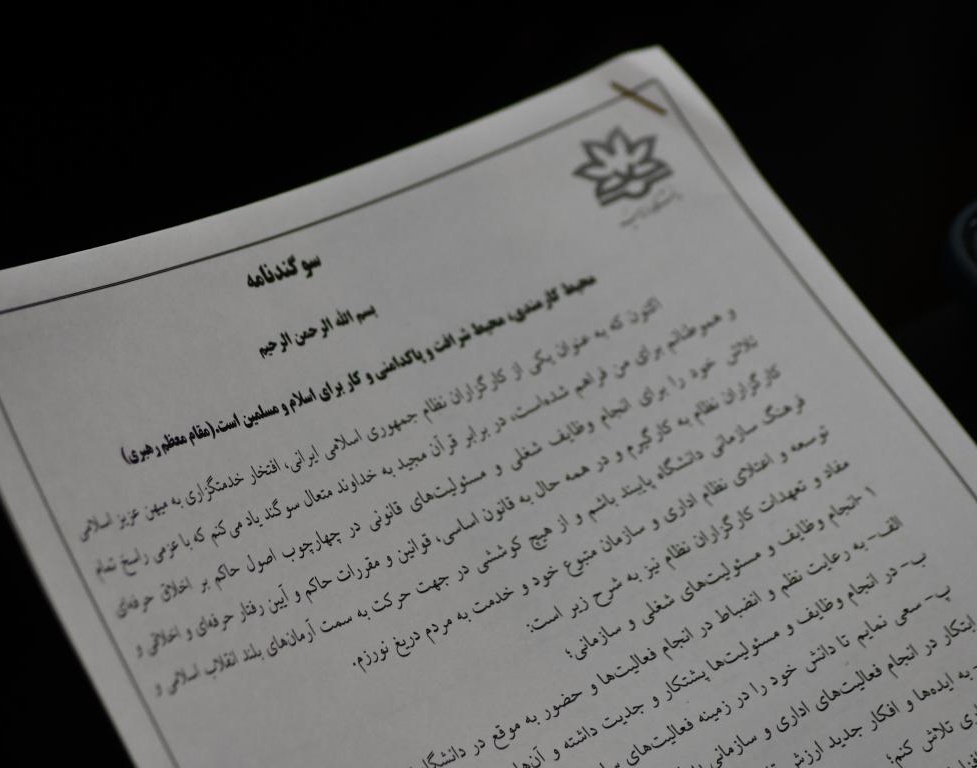 سوگندنامه
بسم الله الرحمن الرحیم
محیط کارمندی، محیط شرافت و پاکدامنی و کار برای اسلام و مسلمین است.(مقام معظم رهبری)
اکنون که به عنوان یکی از کارگزاران نظام جمهوری اسلامی ایرانی، افتخار خدمتگزاری به میهن عزیز اسلامی
و هموطنانم برای من فراهم شده‌است، در برابر قرآن مجید به خداوند متعال سوگند یاد می‌کنم که با عزمی راسخ تمام
تلاش خود را برای انجام وظایف شغلی و مسئولیت‌های قانونی در چهارچوب اصول حاکم بر اخلاق حرفه‌ای
کارگزاران نظام به کارگیرم و در همه حال به قانون اساسی، قوانین و مقررات حاکم و آیین رفتار حرفه‌ای و اخلاقی و
فرهنگ سازمانی دانشگاه پایبند باشم و از هیچ کوششی در جهت حرکت به سمت آرمان‌های بلند انقلاب اسلامی و
توسعه و اعتلای نظام اداری و سازمان متبوع خود و خدمت به مردم دریغ نورزم.
مفاد و تعهدات کارگزاران نظام نیز به شرح زیر است:
۱-انجام وظایف و مسئولیت‌های شغلی و سازمانی؛
الف- به رعایت نظم و انضباط در انجام فعالیت‌ها و حضور به موقع در
ب- در انجام وظایف و مسئولیت‌ها پشتکار و جدیت داشته و
پ- سعی نمایم تا دانش خود را در زمینه فعالیت‌های
ابتکار در انجام فعالیت‌های اداری و سازمانی
به ایده‌ها و افکار جدید ارزش
تلاش کنم؛